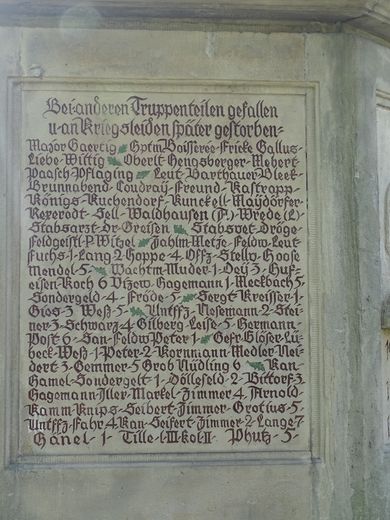 Bei anderen Truppenteilen gefallen
u·an Kriegsleiden später gestorben=
Major Gaertig Hptm Boisseree-Fricke Gallus-
Liebe-Wittig Oberlt Hengsberger-Mebert
Paasch-Pflaging Leut Barthauer-Bleek-
Brunnabend-Coudray-Freund-Kastropp-
Königs-Kuchendorf-Kunckell-Maydörfer-
Rexerodt-Sell-Waldhausen (F.)-Wrede (L)-
Stabsarzt-Dr·Greisen Stabsvet·Dröge-
Feldgeistl·P·Witzel Zahlm·Metze-Feldw·Leut
Fuchs-1-Lang-2-Hoppe-4 Offz-Stellv-Goose
Mendel-5- Wachtm·Muder-1-Dey-3-Huf=
eisen-Koch 6 Vizew·Hagemann 1-Meckbach 5-
Sondergeld-4-Fröde-5- Sergt-Kreisser-1-
Gros-3 Weß-5- Untffz-Nesemann-2-Stei=
ner-3-Schwarz-4-Gilberg-Leise-5-Hermann-
Post 6-San-Feldw Peter 1- Gefr-Glöser-Lü=
beck-Weß-1-Peter-2-Kornmann-Medler-Nei=
dert-3-Gemmer-5 Grob Nüdling 6 Kan-
Hamel-Sondergelt-1-Döllefeld-2-Bittorf-3-
Hagemann-Iller-Markel-Zimmer 4 Arnold
Kamm-Knips-Seibert-Zimmer-Grotius-5-
Untffz-Fahr 4 Kan-Seifert-Zimmer-2-Lange 7
Hänel-1- Tille-l·III·Kol·II- Phutz-5-